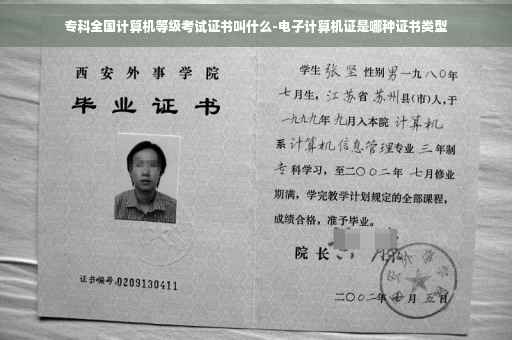 专科全国计算机等级考试证书叫什么-电子计算机证是哪种证书类型
西安外事学院
毕业证书
证书编号:0209130411
学生 张坚 性别 男 一九八〇年
七月生, 江苏省 苏州县(市)人, 于
一九九九年 九月入本院 计算机
系 计算机信息管理专业 三 年制
专科学习, 至二〇〇二年 七月修业
期满, 学完教学计划规定的全部课程,
成绩合格, 准予毕业。
院长
二〇〇二年 月 五日